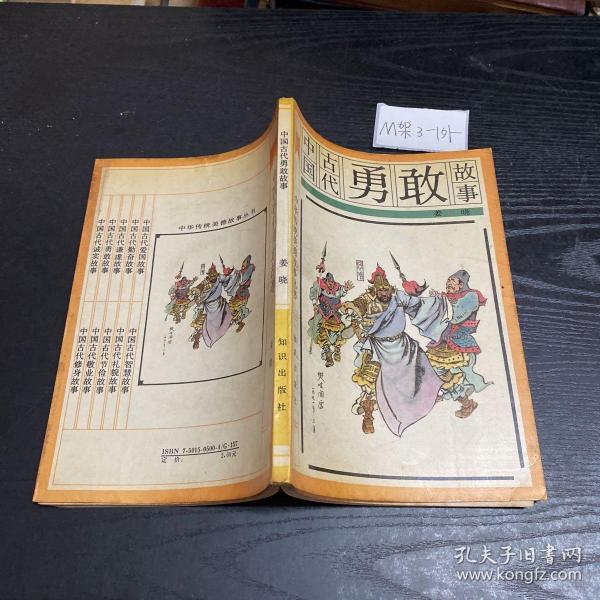 M架3-191
中国
古代
勇敢
故事
姜 晓
中国古代勇敢故事
姜 晓
知识出版社
中华传统美德故事丛书
中国古代爱国故事
中国古代勤奋故事
中国古代谦虚故事
中国古代勇敢故事
中国古代诚实故事
中国古代智慧故事
中国古代礼貌故事
中国古代节俭故事
中国古代敬业故事
中国古代修身故事
ISBN 7-5015-0500-4/G·157
定价: 2.00元
孔夫子旧书网
www.kongfz.com